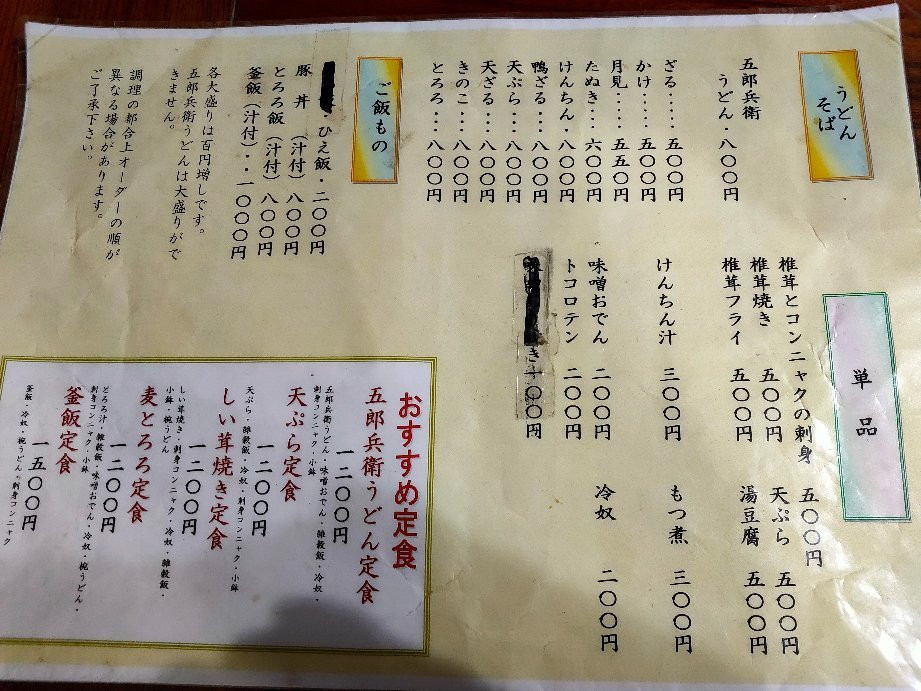 うどん
そば
五郎兵衛
うどん・八〇〇円
ざる‥‥五〇〇円
かけ‥‥五〇〇円
月見‥‥五五〇円
たぬき‥六〇〇円
けんちん・八〇〇円
鴨ざる‥八〇〇円
天ぷら‥八〇〇円
天ざる‥八〇〇円
きのこ‥八〇〇円
とろろ‥八〇〇円
ご飯もの
・ひえ飯・二〇〇円
豚丼(汁付)八〇〇円
とろろ飯(汁付)八〇〇円
釜飯(汁付)・一〇〇〇円
各大盛りは百円増しです。
五郎兵衛うどんは大盛りがで
きません。
調理の都合上オーダーの順が
異なる場合があります。
ご了承下さい。
単品
椎茸とコンニャクの刺身 五〇〇円
椎茸焼き 五〇〇円
椎茸フライ 五〇〇円
天ぷら 五〇〇円
湯豆腐 五〇〇円
けんちん汁 三〇〇円
もつ煮 三〇〇円
味噌おでん 二〇〇円
冷奴 二〇〇円
トコロテン 二〇〇円
き 〇〇円
おすすめ定食
五郎兵衛うどん定食
一二〇〇円
五郎兵衛うどん・味噌おでん・雑穀飯・冷奴・
刺身コンニャク・小鉢
天ぷら定食
一二〇〇円
天ぷら・雑穀飯・冷奴・刺身コンニャク・小鉢
しい茸焼き定食
一二〇〇円
しい茸焼き・刺身コンニャク・冷奴・雑穀飯・
小鉢・椀うどん
麦とろろ定食
一二〇〇円
とろろ汁・雑穀飯・味噌おでん・冷奴・椀うどん・
刺身コンニャク・小鉢
釜飯定食
一五〇〇円
釜飯・冷奴・椀うどん・刺身コンニャク